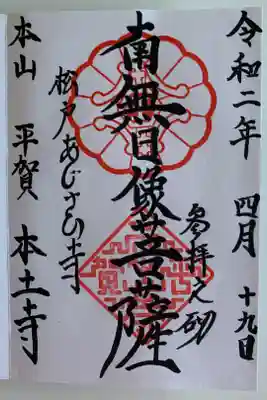 令和二年 四月 十九日
参拝之砌
南無日像菩薩
松戸あじさゐ寺
本山 平賀 本土寺